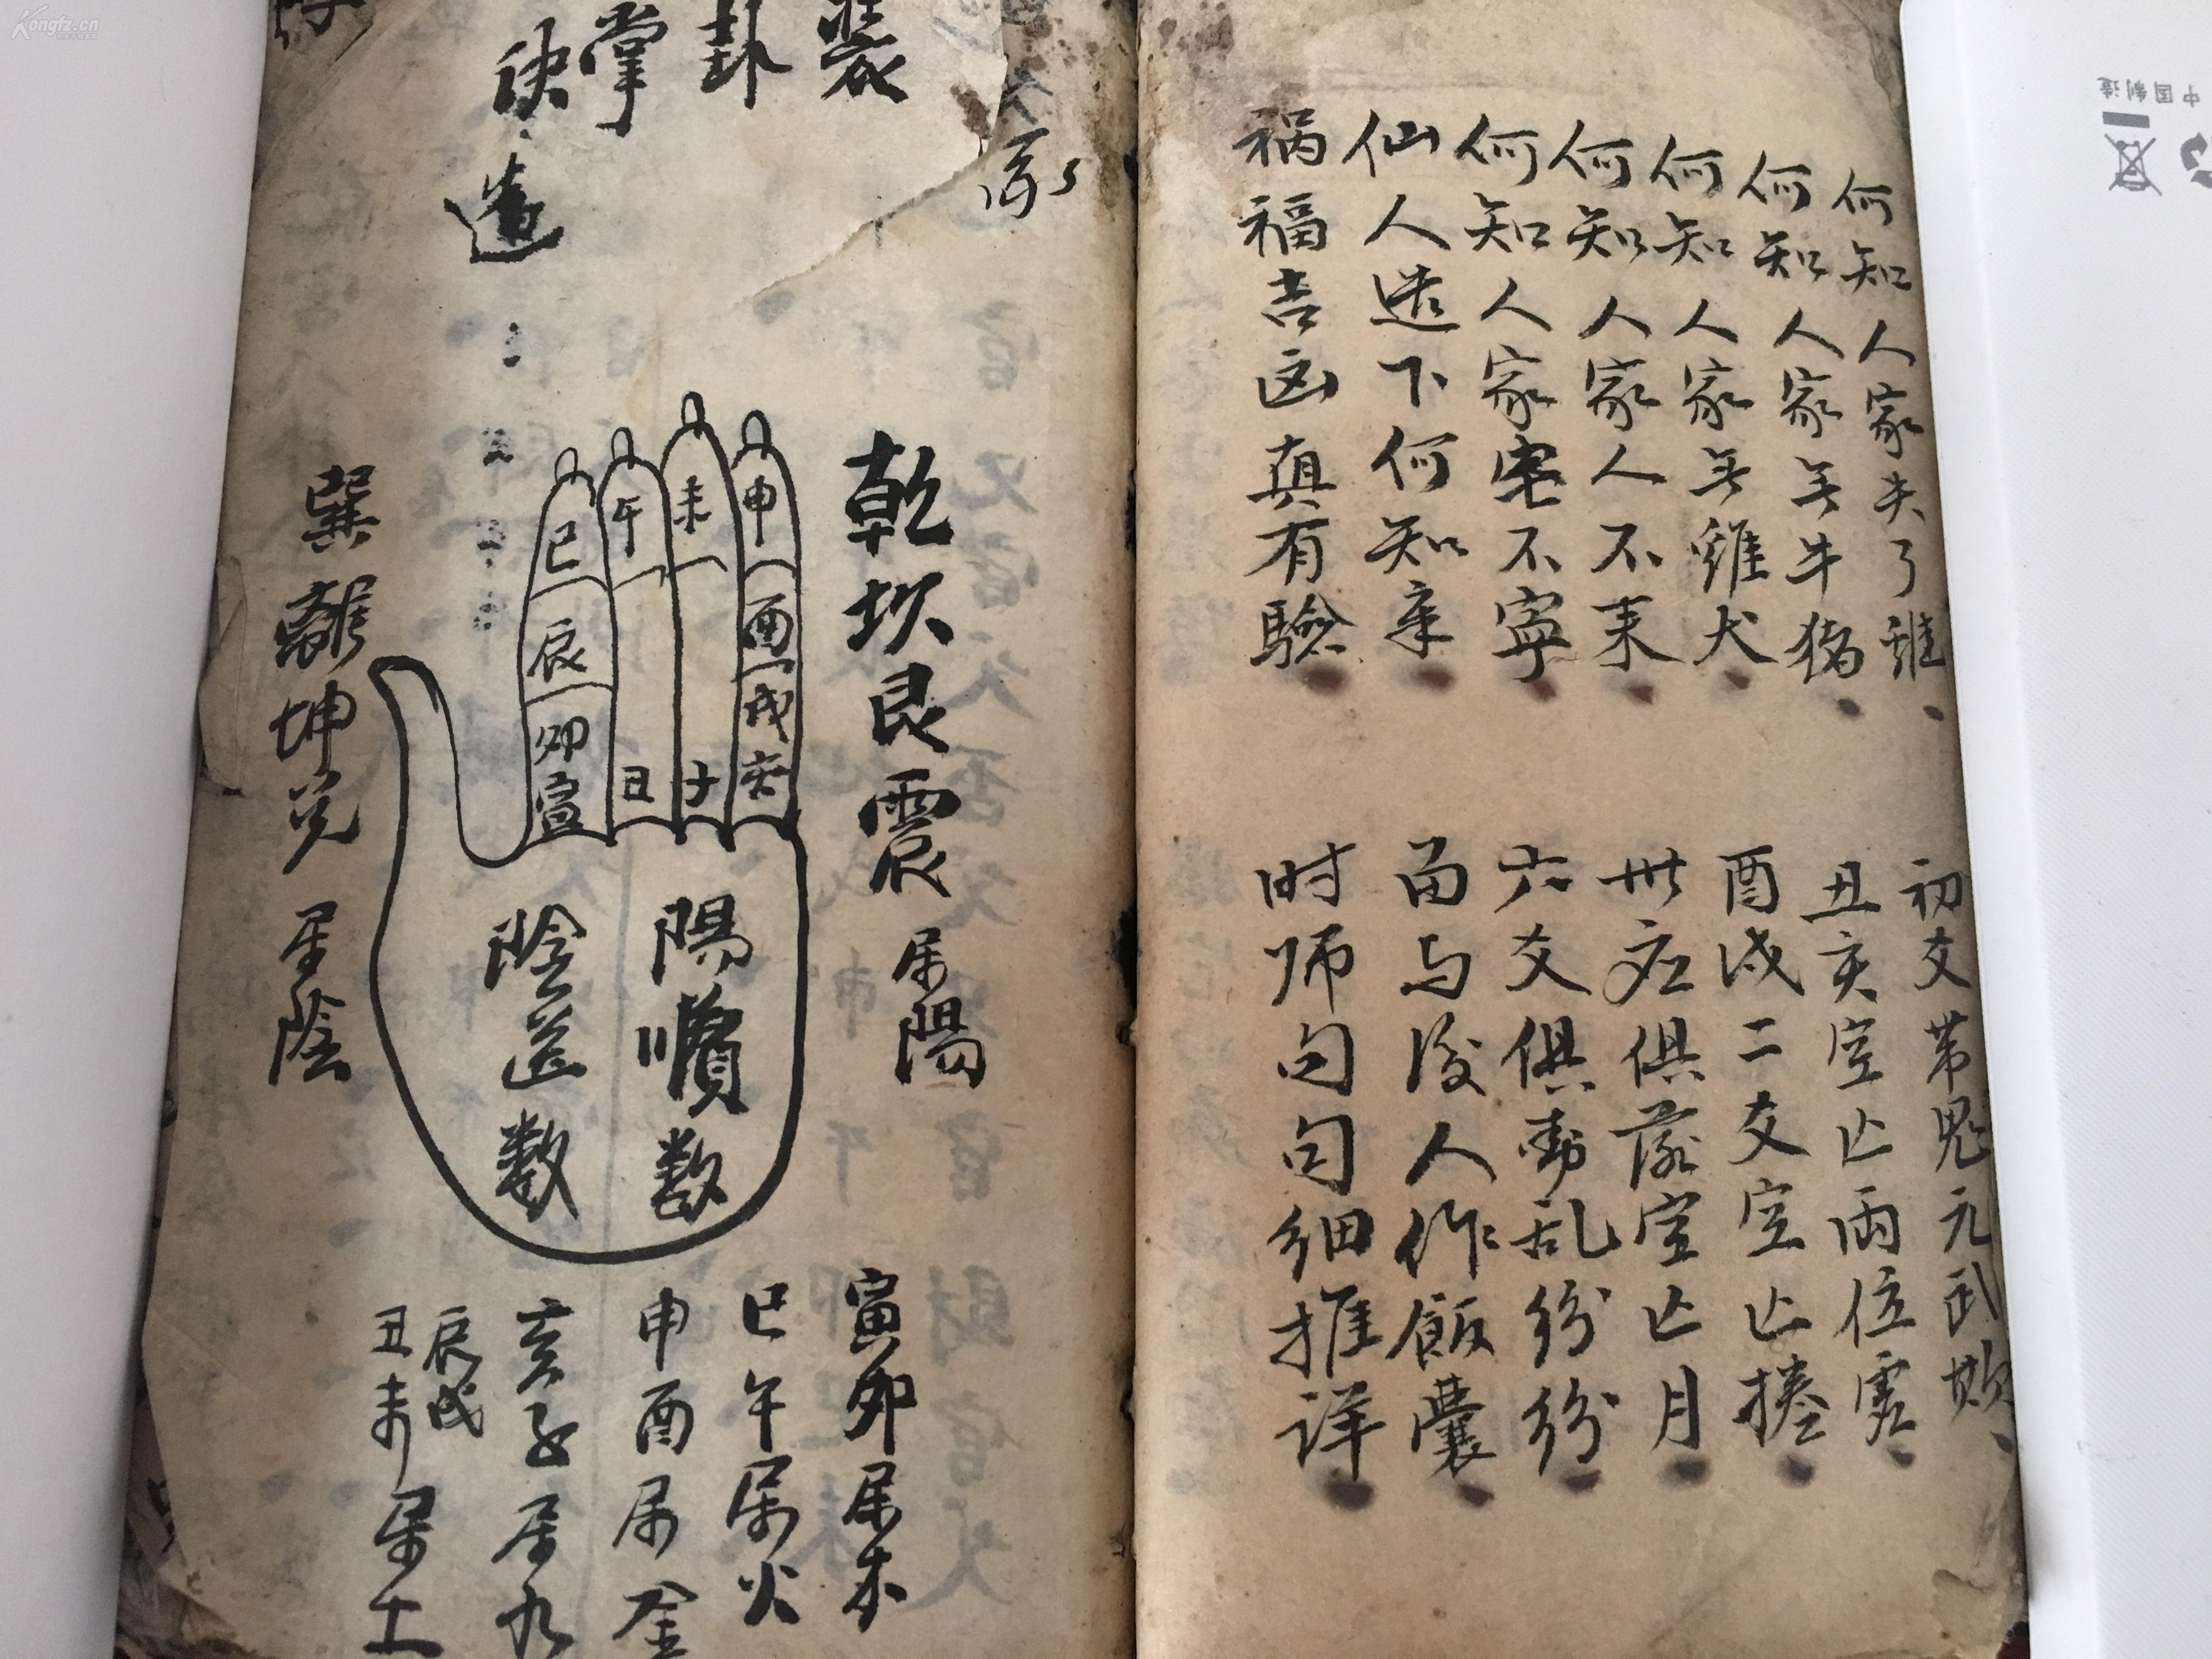 何知人家失了雞
初爻帶鬼元武欺
何知人家无牛猪
丑亥空亡両位虛
何知人家无雞犬
酉戌二爻空亡捲
何知人家人不來
世应俱落空亡月
何知人家宅不寧
六爻俱動乱纷纷
仙人造下何知章
留与後人作飯囊
祸福吉凶真有驗
时师句句细推详
裝卦掌訣
乾坎艮震
属陽
申
酉
戌
亥
未
子
午
丑
巳
辰
卯
寅
陽順数
陰逆数
巽離坤兑
属陰
寅卯属木
巳午属火
申酉属金
亥子属水
辰戌
丑未属土
中国制造
Kongfz.cn